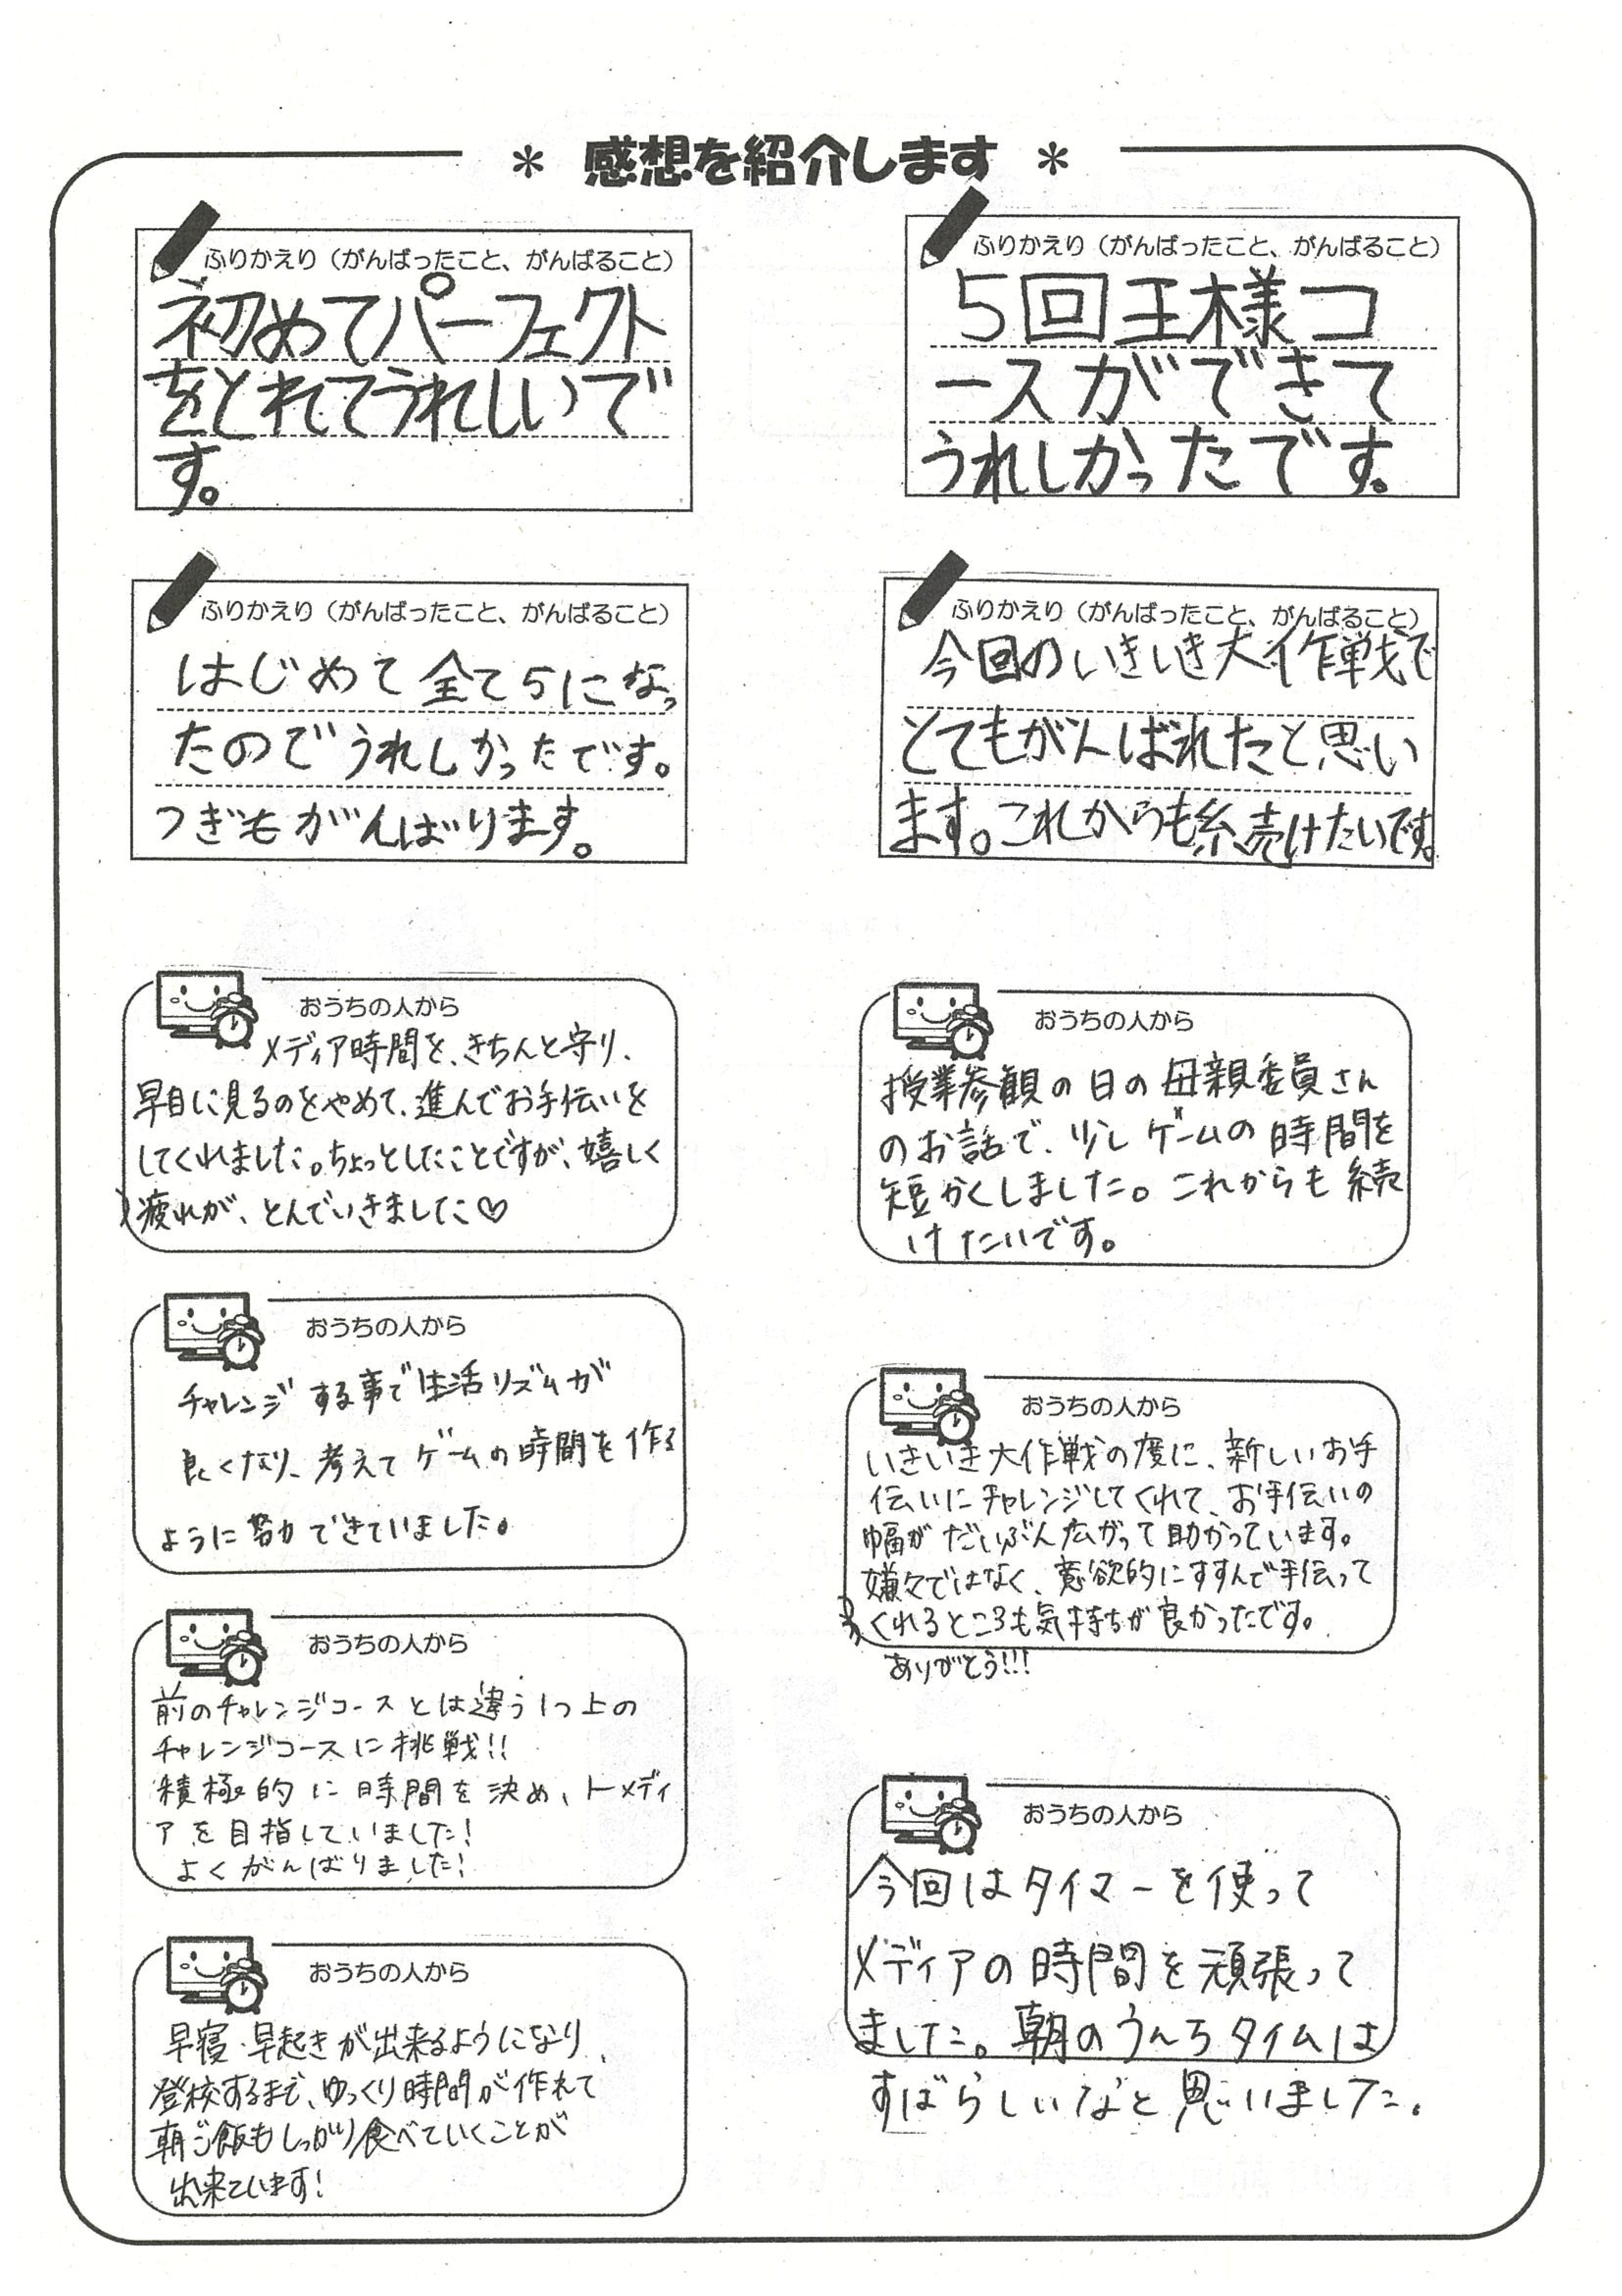 * 感想を紹介します *
ふりかえり（がんばったこと、がんばること）
初めてパーフェクト
をとれてうれしいで
す。
ふりかえり（がんばったこと、がんばること）
5回王様コ
ースができて
うれしかったです。
ふりかえり（がんばったこと、がんばること）
はじめて全て5になっ
たのでうれしかったです。
つぎもがんばります。
ふりかえり（がんばったこと、がんばること）
今回のいきいき大作戦で
とてもがんばれたと思い
ます。これからも続けたいです。
おうちの人から
メディア時間を、きちんと守り、
早目に見るのをやめて、進んでお手伝いを
してくれました。ちょっとしたことですが、嬉しく
疲れが、とんでいきました♡
おうちの人から
授業参観の日の母親委員さん
のお話で、少しゲームの時間を
短かくしました。これからも続
けたいです。
おうちの人から
チャレンジする事で生活リズムが
良くなり、考えてゲームの時間を作る
ように努力できていました。
おうちの人から
いきいき大作戦の度に、新しいお手
伝いにチャレンジしてくれて、お手伝いの
幅がだいぶん広がって助かっています。
嫌々ではなく、意欲的にすすんで手伝って
くれるところも気持ちが良かったです。
ありがとう!!!
おうちの人から
前のチャレンジコースとは違う1つ上の
チャレンジコースに挑戦!!
積極的に時間を決め、トメディ
アを目指していました!
よくがんばりました!
おうちの人から
今回はタイマーを使って
メディアの時間を頑張って
ました。朝のうんちタイムは
すばらしいなと思いました。
おうちの人から
早寝・早起きが出来るようになり、
登校するまで、ゆっくり時間が作れて
朝ご飯もしっかり食べていくことが
出来ています!